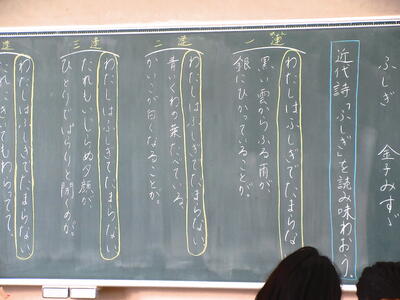 ふしぎ 金子みすゞ
近代詩「ふしぎ」を読み味わおう。
一連
わたしはふしぎでたまらな
黒い雲からふる雨が、
銀にひかっていることが。
二連
わたしはふしぎでたまらない
青いくわの葉たべている、
かいこが白くなることが。
三連
わたしはふしぎでたまらない
だれもいじらぬ夕顔が、
ひとりでぱらりと開くのが。
連
わたしはふしぎでたまらない
だれにきいてもわらってて、